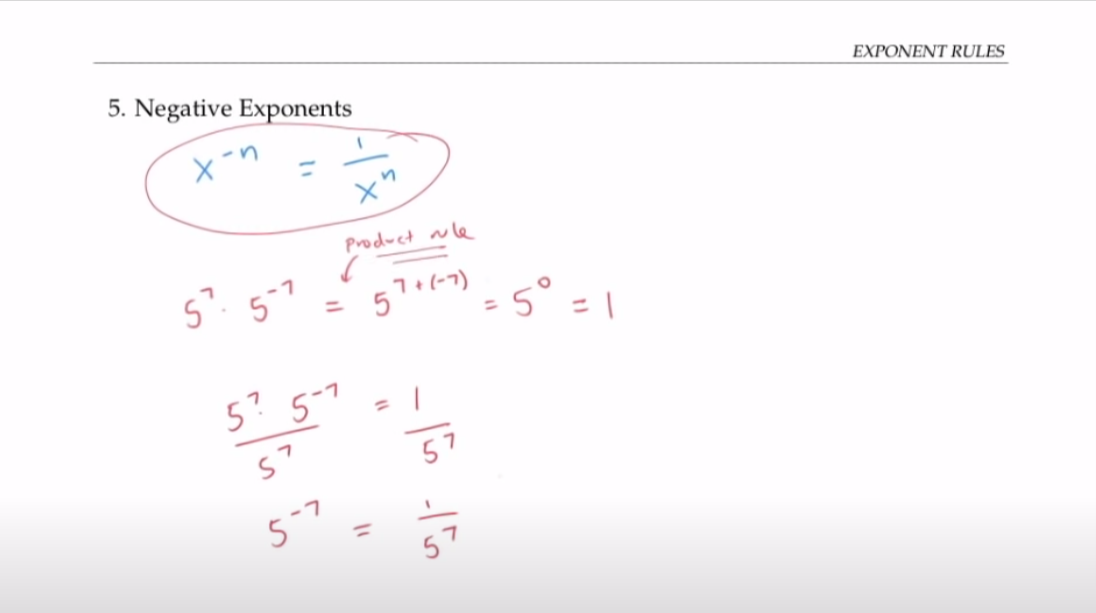 EXPONENT RULES
5. Negative Exponents
x⁻ⁿ = 1/xⁿ
product rule
5⁷ · 5⁻⁷ = 5⁷⁺⁽⁻⁷⁾ = 5⁰ = 1
5⁷ · 5⁻⁷/5⁷ = 1/5⁷
5⁻⁷ = 1/5⁷